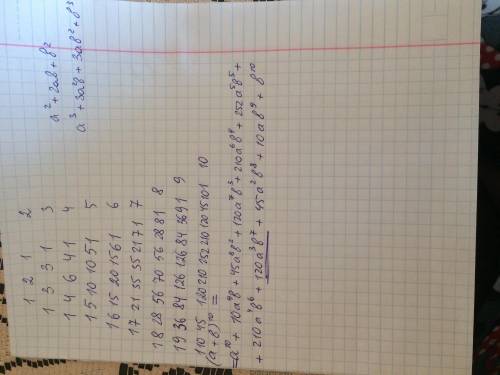 1 2 1 2
1 3 3 1 3
1 4 6 4 1 4
1 5 10 10 5 1 5
1 6 15 20 15 6 1 6
1 7 21 35 35 21 7 1 7
1 8 28 56 70 56 28 8 1 8
1 9 36 84 126 126 84 36 9 1 9
1 10 45 120 210 252 210 120 45 10 1 10
(a+b)¹⁰ =
=a¹⁰ + 10a⁹b + 45a⁸b² + 120a⁷b³ + 210a⁶b⁴ + 252a⁵b⁵ +
+ 210a⁴b⁶ + 120a³b⁷ + 45a²b⁸ + 10ab⁹ + b¹⁰
a² + 2ab + b²
a³ + 3a²b + 3ab² + b³